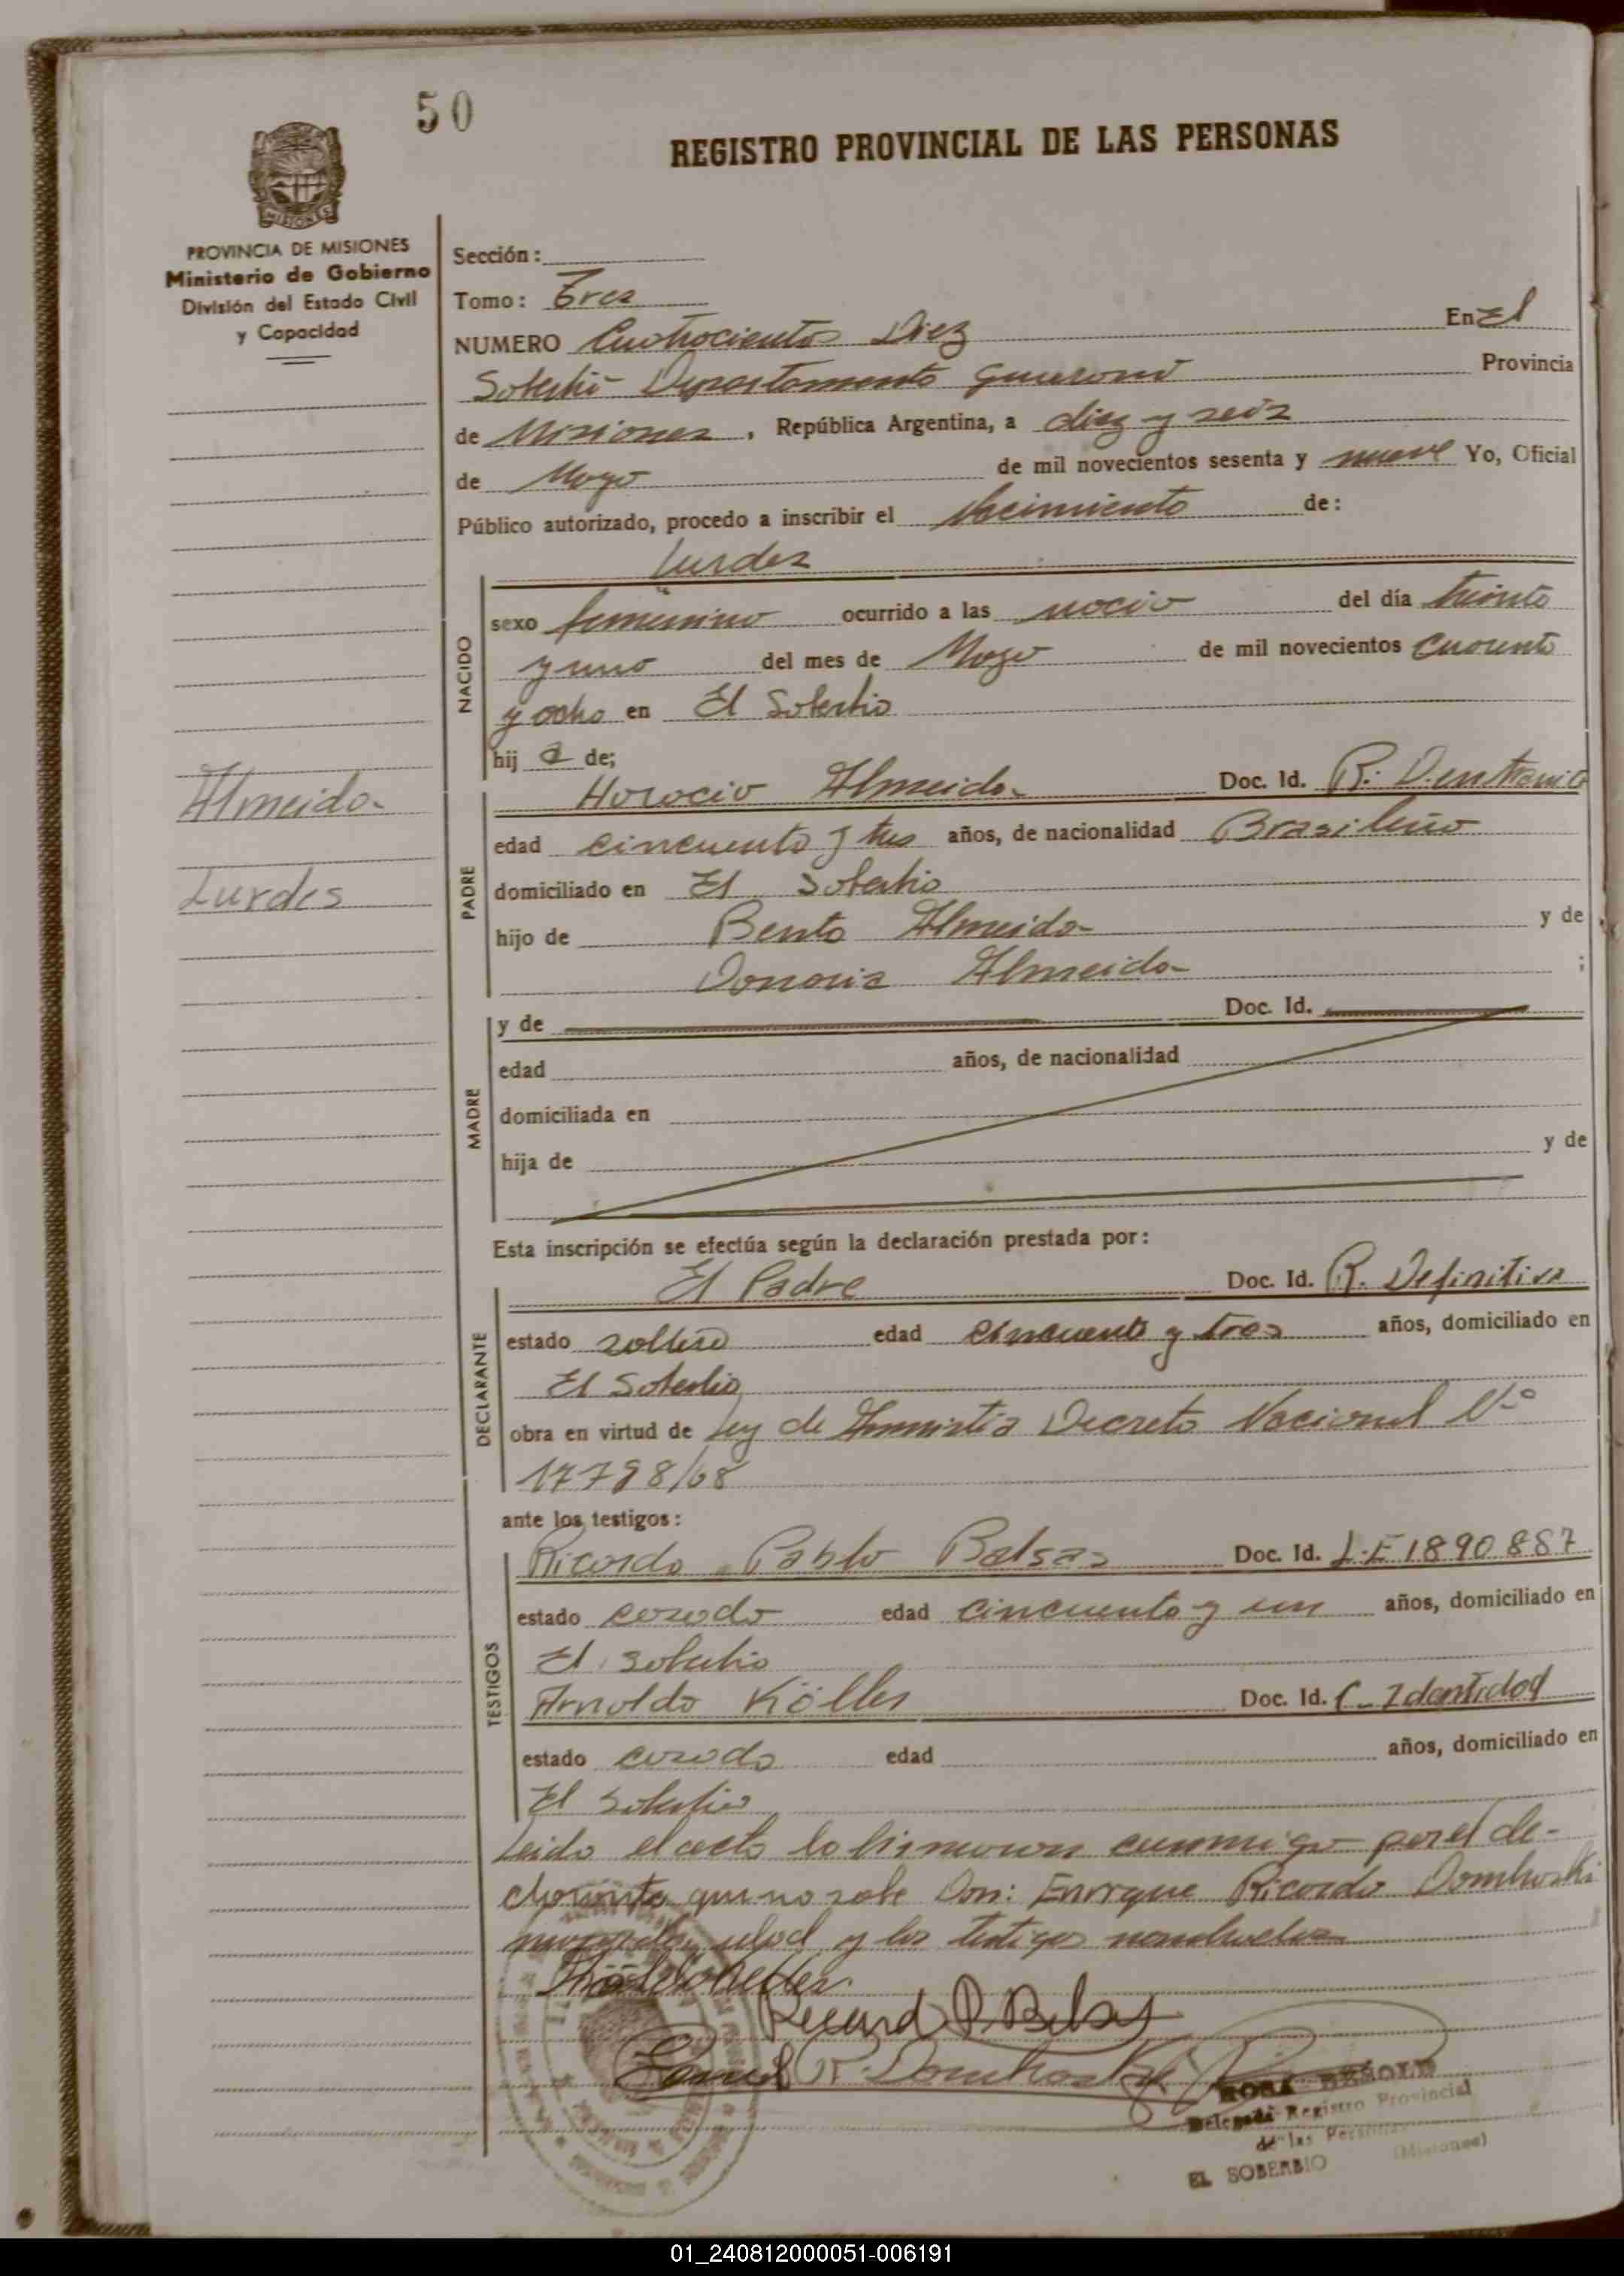 50
REGISTRO PROVINCIAL DE LAS PERSONAS
MISIONES
PROVINCIA DE MISIONES
Ministerio de Gobierno
División del Estado Civil
y Capacidad
Sección:
Tomo: Tres
NUMERO Cuatrocientos Diez En El
Soberbio Departamento Guaraní Provincia
de Misiones, República Argentina, a diez y seis
de Mayo de mil novecientos sesenta y nueve Yo, Oficial
Público autorizado, procedo a inscribir el Nacimiento de:
Lurdes
NACIDO
sexo femenino ocurrido a las del día treinta
y uno del mes de Mayo de mil novecientos Cuarenta
y ocho en El Soberbio
hij a de;
Almeida
Lurdes
PADRE
Horacio Almeida Doc. Id. R. D. en tramite
edad cincuenta y tres años, de nacionalidad Brasileño
domiciliado en El Soberbio
hijo de Bento Almeida y de
Almeida ;
MADRE
y de Doc. Id.
edad años, de nacionalidad
domiciliada en
hija de y de
Esta inscripción se efectúa según la declaración prestada por:
DECLARANTE
El Padre Doc. Id. R. Definitiva
estado soltero edad cincuenta y tres años, domiciliado en
El Soberbio
obra en virtud de Ley de Amnistia Decreto Nacional Nº
17798/68
ante los testigos:
TESTIGOS
Ricardo Pablo Balsas Doc. Id. L.E 1890887
estado casado edad cincuenta y un años, domiciliado en
El Soberbio
Arnoldo Köller Doc. Id. C. Identidad
estado casado edad años, domiciliado en
El Soberbio
Leido el acta lo firmaron conmigo por el de-
clarante que no sabe Don: Enrrque Ricardo Domhoski
y los testigos nombrados
Ricard P. Balsas
R. Domhoski
ROSA BESOLD
Delegada Registro Provincial
de las Personas
(Misiones)
EL SOBERBIO
01_240812000051-006191